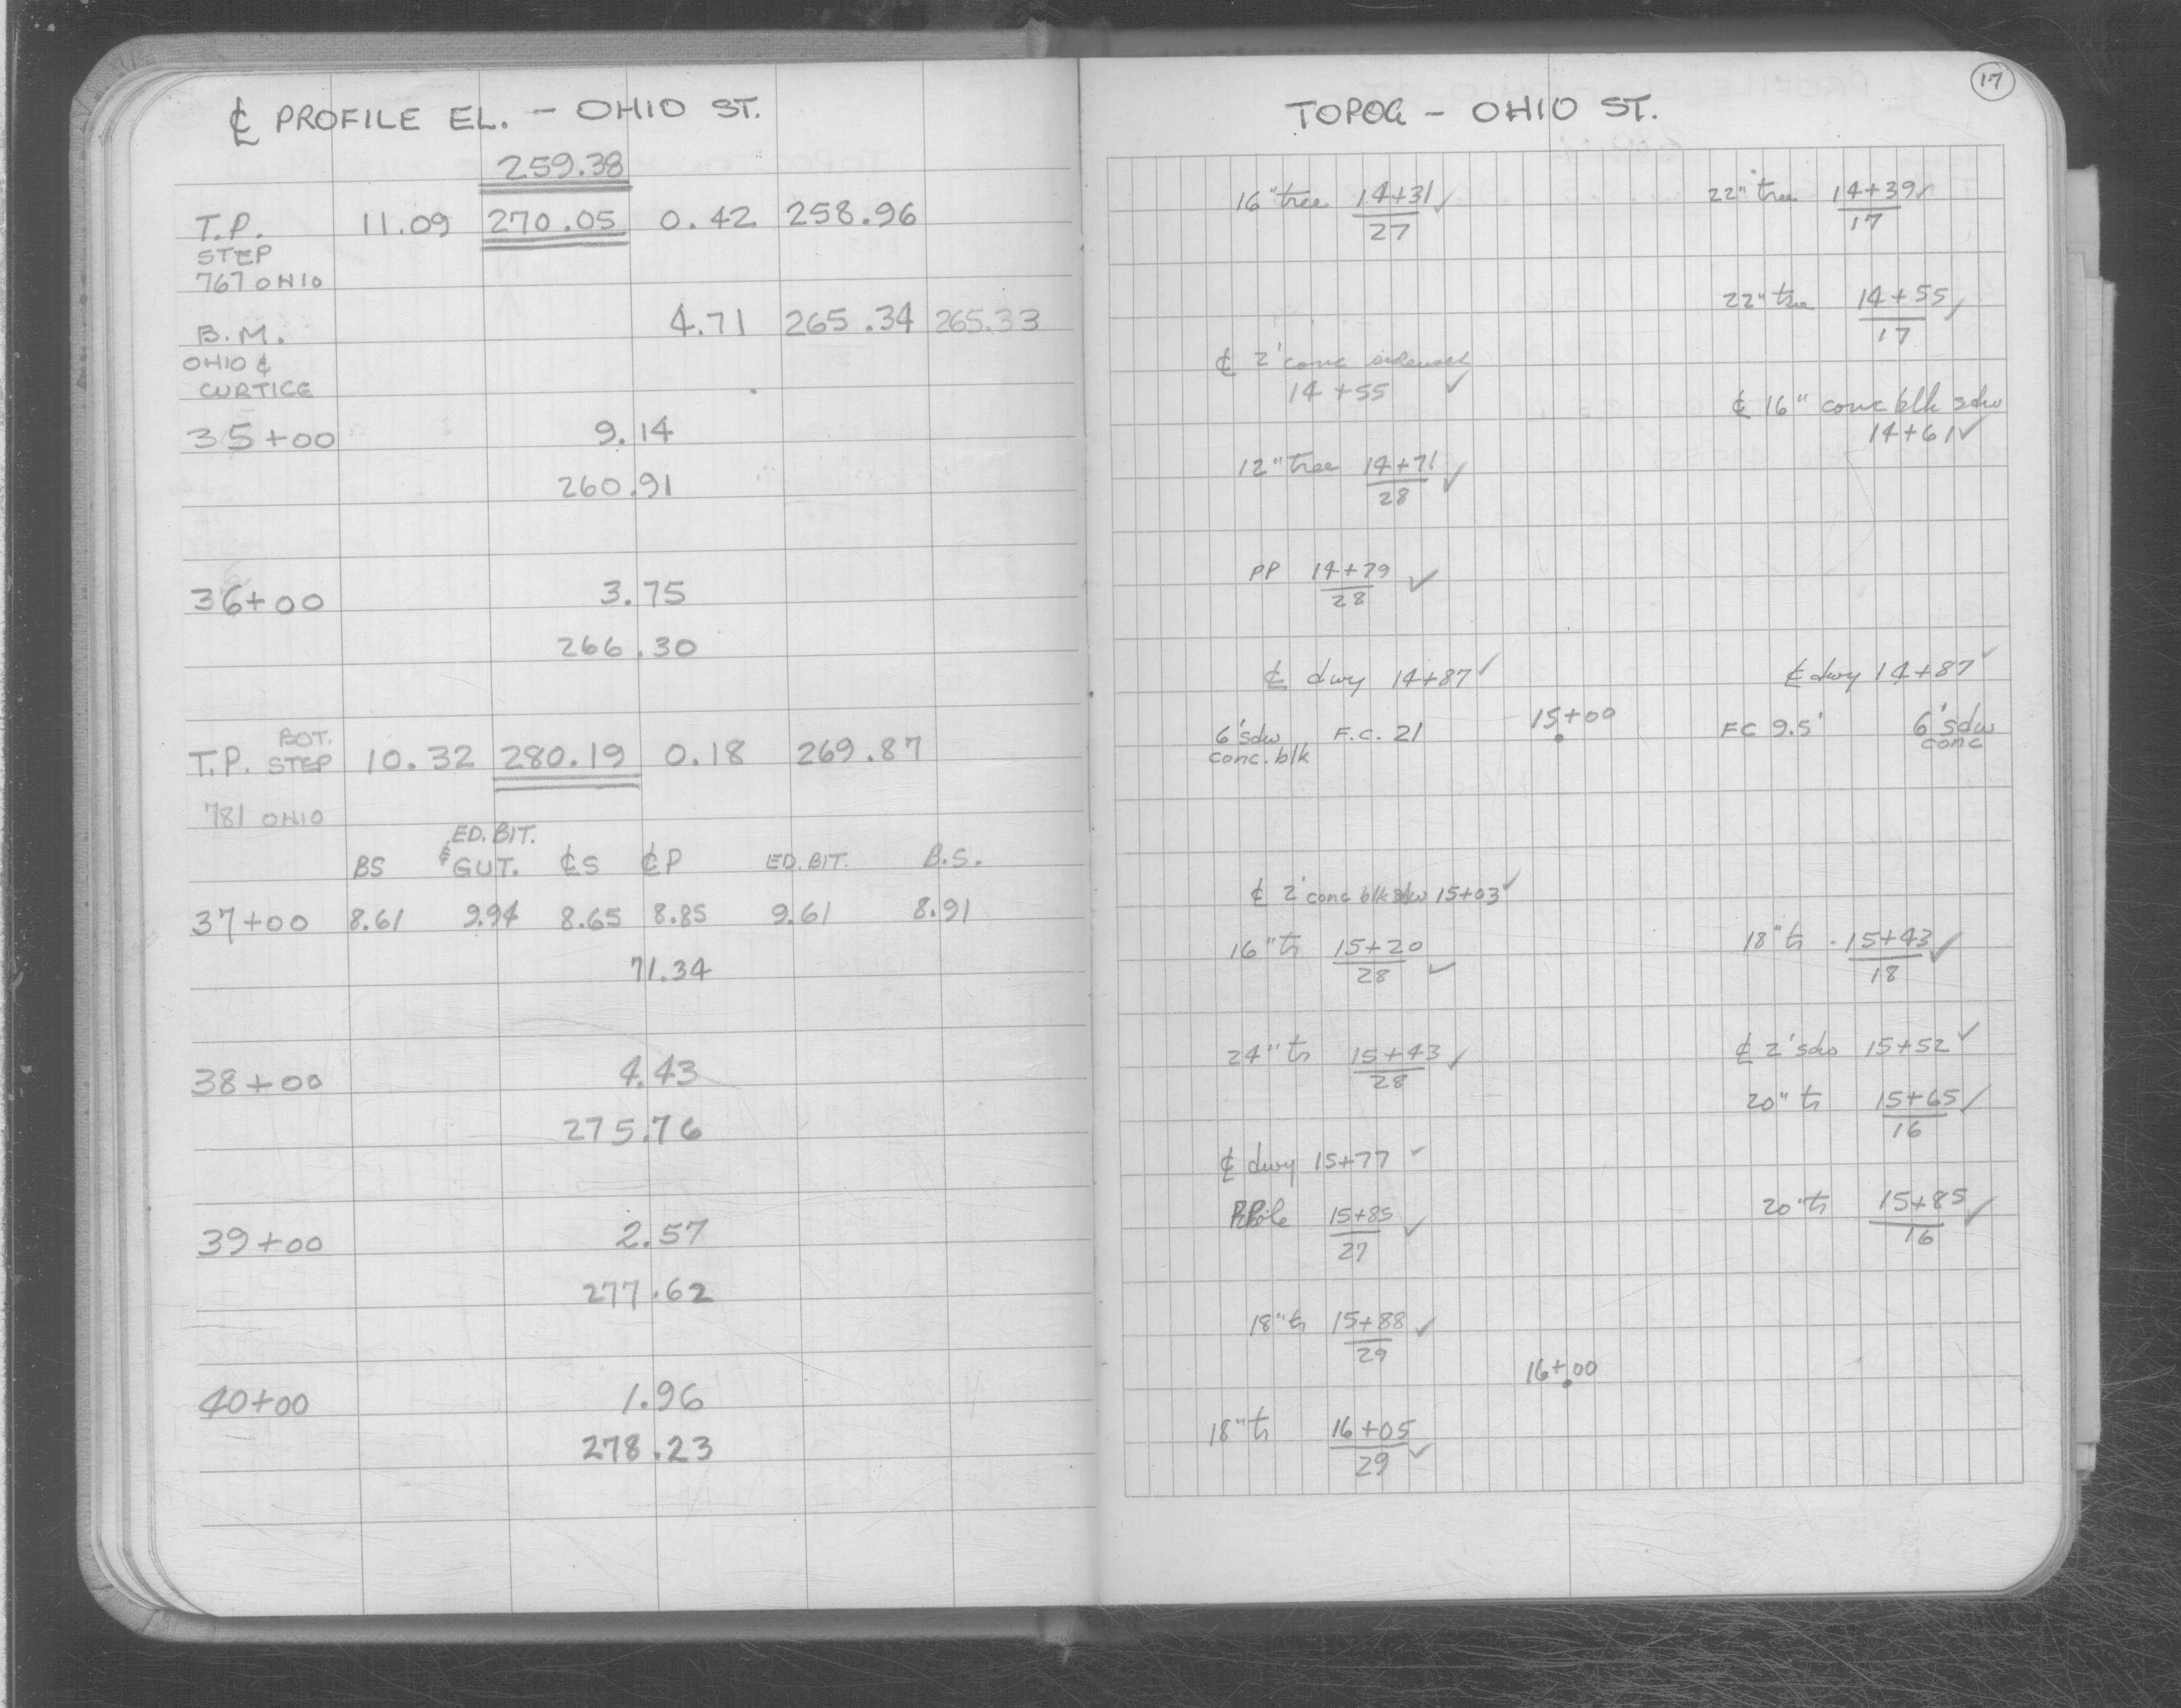 ℄ PROFILE EL. - OHIO ST.
259.38
T.P. 11.09 270.05 0.42 258.96
STEP
767 OHIO
B.M. 4.71 265.34 265.33
OHIO &
CURTICE
35+00 9.14
260.91
36+00 3.75
266.30
T.P. BOT. STEP 10.32 280.19 0.18 269.87
781 OHIO
BS ED. BIT. & GUT. ℄S ℄P ED. BIT. B.S.
37+00 8.61 9.94 8.65 8.85 9.61 8.91
71.34
38+00 4.43
275.76
39+00 2.57
277.62
40+00 1.96
278.23
17
TOPOG - OHIO ST.
16" tree 14+31 ✓ 22" tree 14+39 ✓
27 17
22" tree 14+55 ✓
17
℄ 2' conc sidewalk
14+55 ✓
℄ 16" conc blk sdw
14+61 ✓
12" tree 14+71 ✓
28
PP 14+79 ✓
28
℄ dwy 14+87 ✓ ℄ dwy 14+87 ✓
6' sdw F.C. 21 15+00 FC 9.5' 6' sdw
conc. blk conc
℄ 2' conc blk sdw 15+03 ✓
16" tr 15+20 ✓ 18" tr 15+43 ✓
28 18
24" tr 15+43 ✓ ℄ 2' sdw 15+52 ✓
28
20" tr 15+65 ✓
16
℄ dwy 15+77 ✓
15+85 ✓ 20" tr 15+85 ✓
27 16
18" tr 15+88 ✓
29
16+00
18" tr 16+05 ✓
29